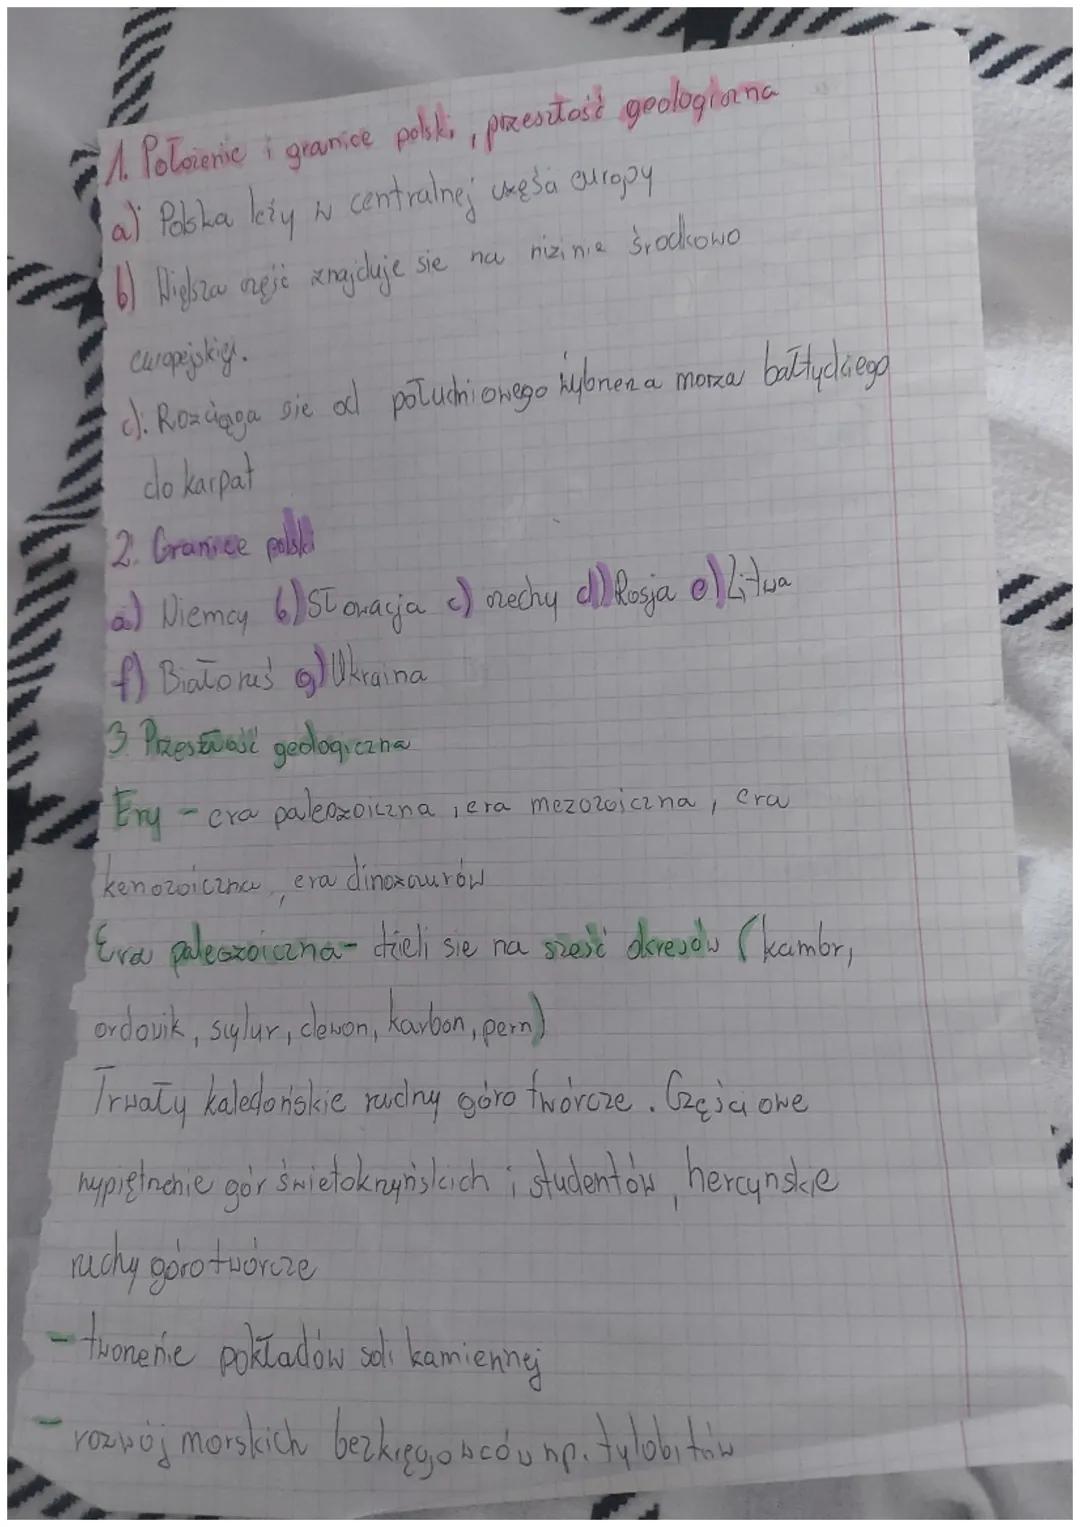 1. Położenie i granice polski, przeszłość geologiczna
a) Polska leży w centralnej części europy
b) Większa część znajduje sie na nizinie środkowo
europejskiej.
c). Rozciąga sie od południowego wybrzeża morza bałtyckiego
do karpat
2. Granice polski
a) Niemcy b) Słowacja c) czechy d) Rosja e) Litwa
f) Białoruś g) Ukraina
3. Przeszłość geologiczna
Ery - era paleozoiczna, era mezozoiczna, era
kenozoiczna, era dinozaurów
Era paleozoiczna - dzieli sie na sześć okresów (kambr,
ordovik, sylur, dewon, karbon, perm)
Trwały kaledońskie ruchy góro twórcze. Częściowe
wypiętrzenie gór świetokrzyńskich i studentów, hercynskie
ruchy górotwórcze
- tworzenie pokładów soli kamiennej
- rozwój morskich bezkręgowców np. tylobitów